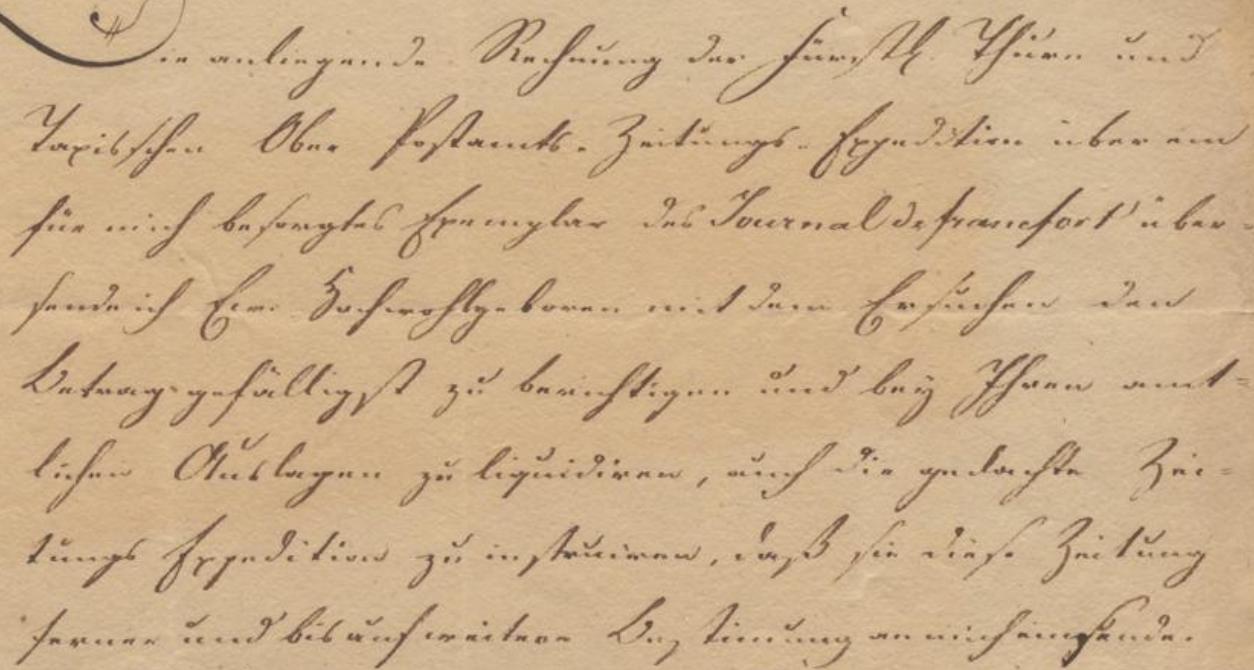 Die anliegende Rechnung der Fürstl. Thurn und
Taxisschen Ober Postamts-Zeitungs-Expedition über ein
für mich besorgtes Exemplar des Journal de francfort über-
sende ich Euer Hochwohlgeboren mit dem Ersuchen den
Betrag gefälligst zu berichtigen und bey Ihren amt-
lichen Auslagen zu liquidiren, auch die gedachte Zei-
tungs Expedition zu instruiren, daß sie diese Zeitung
ferner und bis auf weitere Bestimmung an mich einsende.